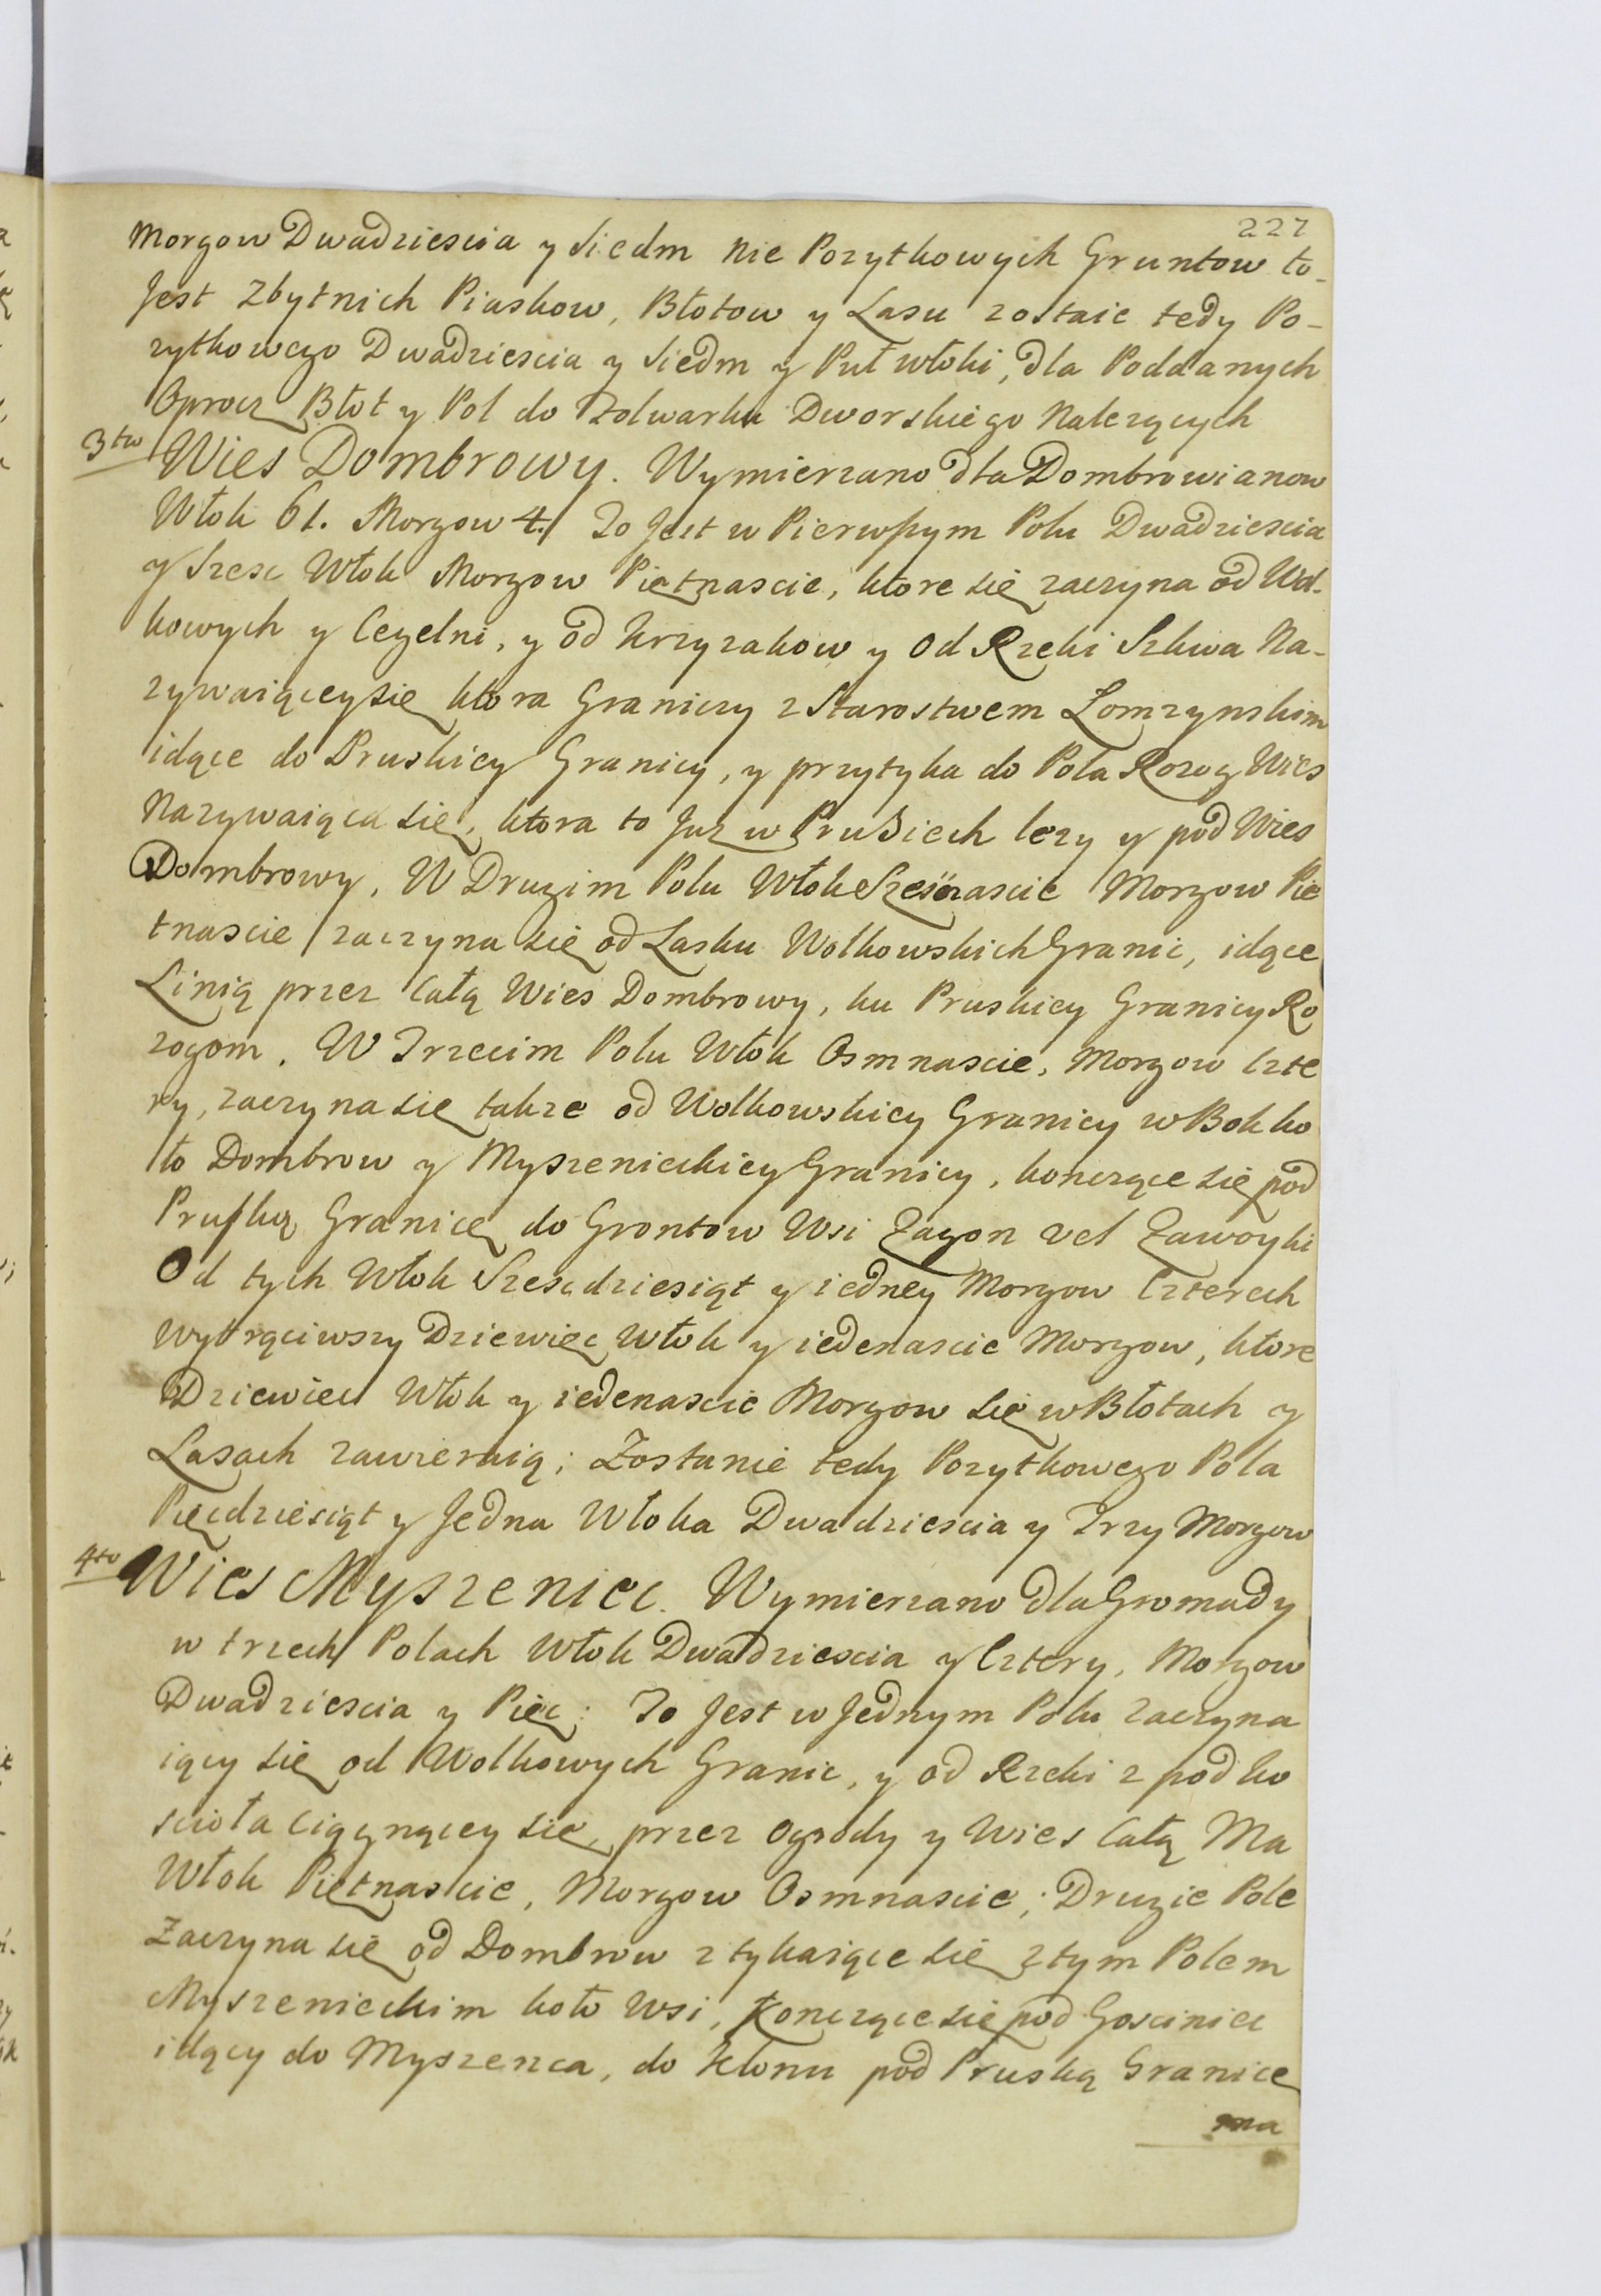 227
Morgow Dwadziescia y Siedm nie Pozytkowych Gruntow to-
Jest Zbytnich Piaskow, Błotow y Lasu zostaie tedy Po-
zytkowego Dwadziescia y Siedm y Puł włoki, dla Poddanych
Oprocz Błot y Pol do Folwarku Dworskiego Nalezących
3tio Wies Dombrowy. Wymierzano dla Dombrowianow
Włok 61. Morgow 4./ To Jest w Pierwszym Polu Dwadziescia
y Szesc Włok Morgow Piętnascie, ktore się zaczyna od Wol-
kowych y Cegelni, y od Krzyzakow y Od Rzeki Szkwa Na-
zywaiącey się ktora Graniczy z Starostwem Łomzynskim
idące do Pruskiey Granicy, y przytyka do Pola Rozog Wies
Nazywaiąca się, ktora to Juz w Prusiech lezy y pod Wies
Dombrowy, W Drugim Polu Włok Szesnascie Morgow Pie
tnascie / zaczyna się od Lasku Wolkowskich Granic, idące
Linią przez Całą Wies Dombrowy, ku Pruskiey Granicy Ro
zogom. W Trzecim Polu Włok Osmnascie, Morgow Czte
ry, zaczyna się takze od Wolkowskiey Granicy w Bok ko
ło Dombrow y Myszenieckiey Granicy, konczące się pod
Pruską Granicę do Grontow Wsi Zagon vel Zawoyki
Od tych Włok Szescdziesiąt y iedney Morgow Czterech
Wytrąciwszy Dziewięc Włok y iedenascie Morgow, ktore
Dziewiec Włok y iedenascie Morgow się w Błotach y
Lasach zawieraią; Zostanie tedy Pozytkowego Pola
Pięcdziesiąt y Jedna Włoka Dwadziescia y Trzy Morgow
4to Wies Myszeniec. Wymierzano dla Gromady
w trzech Polach Włok Dwadziescia y Cztery, Morgow
Dwadziescia y Pięc; To Jest w Jednym Polu zaczyna
iący się od Wolkowych Granic, y od Rzeki z pod ko
scioła Ciągnącey się, przez Ogrody y Wies Całą Ma
Włok Piętnascie, Morgow Osmnascie; Drugie Pole
Zaczyna się od Dombrow ztykaiące się z tym Polem
Myszenieckim koło Wsi, konczące się pod Gosciniec
idący do Myszenca, do Klonu pod Pruską Granicę
ma